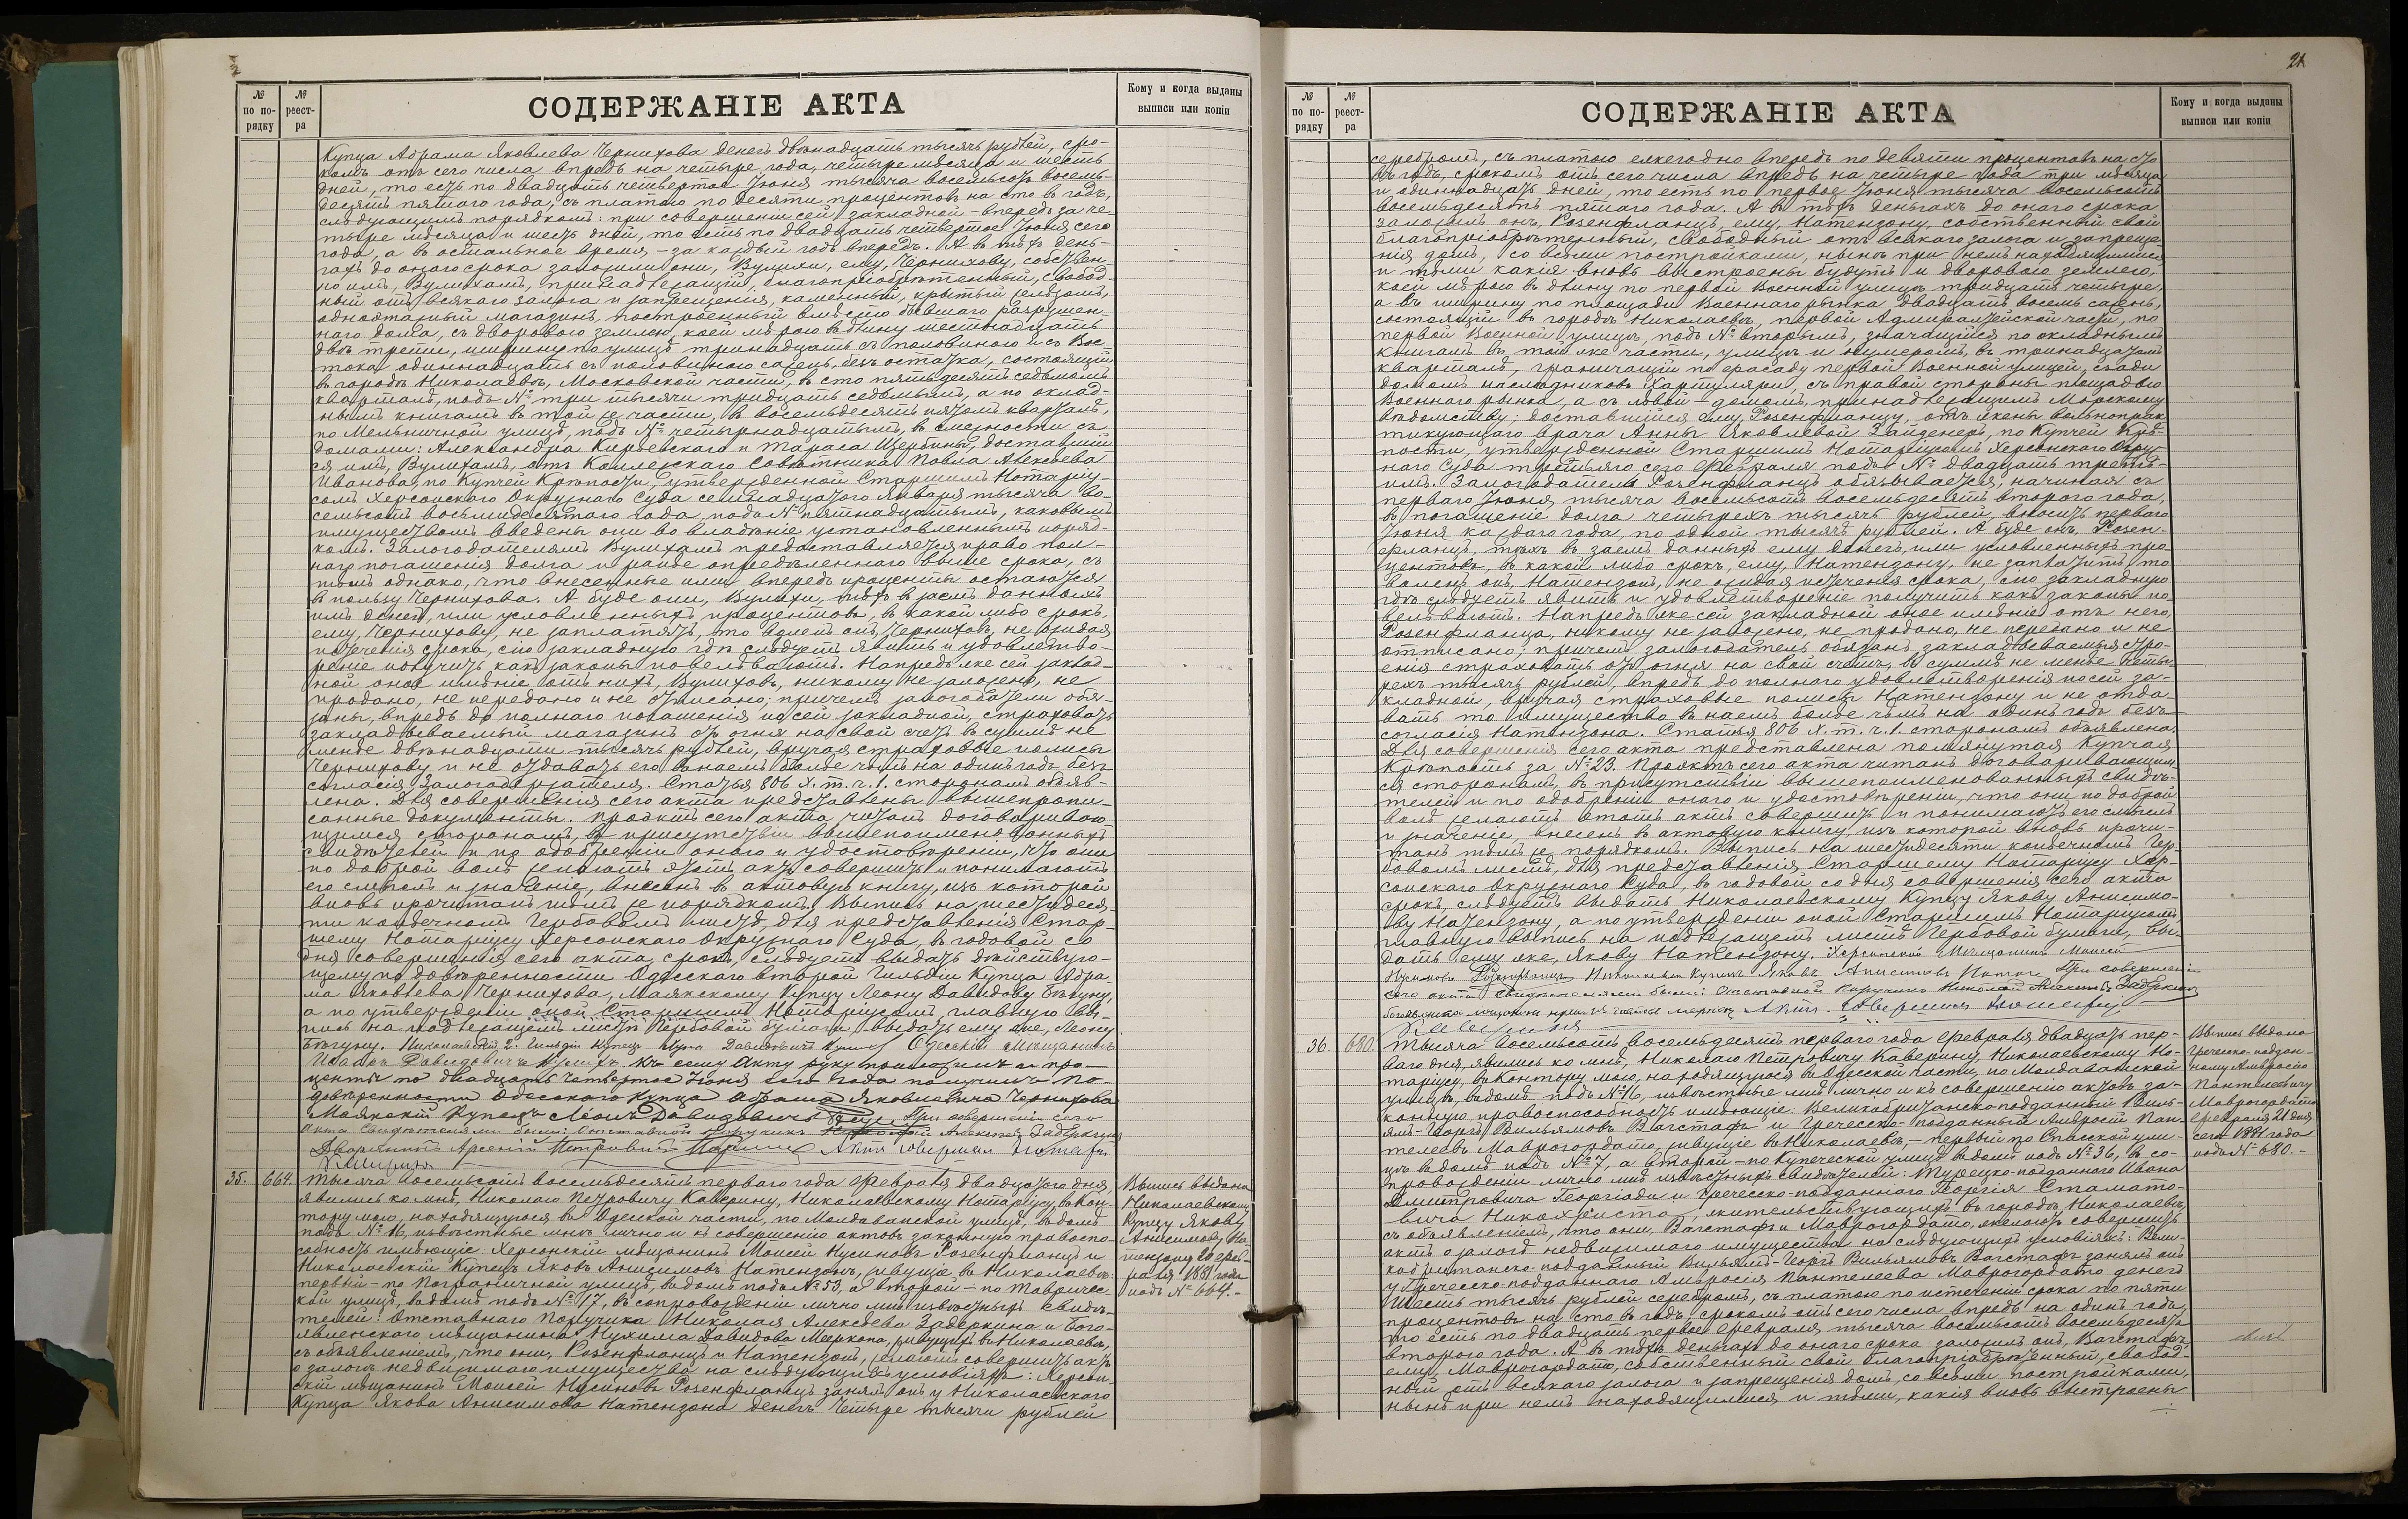 № по порядку
№ реестра
СОДЕРЖАНІЕ АКТА
Кому и когда выданы выписи или копіи
Купца Абрама Яковлева Чернихова денегъ двѣнадцать тысячъ рублей, сро-
комъ отъ сего числа впредь на четыре года, четыре мѣсяца и шесть
дней, то есть по двадцать четвертое Іюня тысяча восемьсотъ восемь-
десятъ пятаго года, съ платою по десяти процентовъ на сто въ годъ,
слѣдующимъ порядкомъ: при совершеніи сей закладной – впередъ за че-
тыре мѣсяца и шесть дней, то есть по двадцать четвертое Іюня сего
года, а въ остальное время – за каждый годъ впередъ. А въ тѣхъ день-
гахъ до онаго срока заложили они, Вулихи, ему, Чернихову, собствен-
но имъ, Вулихамъ, принадлежащій, благопріобрѣтенный, свобод-
ный отъ всякаго залога и запрещенія, каменный, крытый желѣзомъ,
одноэтажный магазинъ, построенный вмѣсто бывшаго разрушен-
наго дома, съ дворовою землею, коей мѣрою въ длину шестнадцать
двѣ трети, ширину по улицѣ тринадцать съ половиною и съ Вос-
тока одиннадцать съ половиною сажень, безъ остатка, состоящій
въ городѣ Николаевѣ, Московской части, въ сто пятьдесятъ седьмомъ
кварталѣ, подъ № три тысячи тридцать седьмымъ, а по оклад-
нымъ книгамъ въ той же части, въ восемьдесятъ пятомъ кварталѣ,
по Мельничной улицѣ, подъ № четырнадцатымъ, въ смежности съ
домами: Александра Кирьевскаго и Тараса Щербины, доставшій-
ся имъ, Вулихамъ, отъ Коллежскаго Совѣтника Павла Алексѣева
Иванова, по Купчей Крѣпости, утвержденной Старшимъ Нотаріу-
сомъ Херсонскаго Окружнаго Суда семнадцатаго Января тысяча во-
семьсотъ восьмидесятаго года, подъ № пятнадцатымъ, каковымъ
имуществомъ введены они во владѣніе установленнымъ поряд-
комъ. Залогодателямъ Вулихамъ предоставляется право пол-
наго погашенія долга и ранѣе опредѣленнаго выше срока, съ
тѣмъ однако, что внесенные ими впередъ проценты остаются
въ пользу Чернихова. А буде они, Вулихи, тѣхъ въ заемъ данныхъ
имъ денегъ, или условленныхъ процентовъ, въ какой либо срокъ,
ему, Чернихову, не заплатятъ, то воленъ онъ, Черниховъ, не ожидая
истеченія срока, сію закладную гдѣ слѣдуетъ явить и удовлетво-
реніе получить какъ законы повелѣваютъ. Напредь же сей заклад-
ной оное имѣніе отъ нихъ, Вулиховъ, никому не заложено, не
продано, не передано и не отписано; причемъ залогодатели обя-
заны, впредь до полнаго погашенія по сей закладной, страховать
закладываемый магазинъ отъ огня на свой счетъ въ суммѣ не
менѣе двѣнадцати тысячъ рублей, вручая страховые полисы
Чернихову и не отдавать его въ наемъ болѣе чѣмъ на одинъ годъ безъ
согласія Залогодержателя. Статья 806 X. т. ч. 1. сторонамъ объяв-
лена. Для совершенія сего акта представлены вышепропи-
санные документы. Проэктъ сего акта читанъ договариваю-
щимся сторонамъ, въ присутствіи вышепоименованныхъ
свидѣтелей и по одобреніи онаго и удостовѣреніи, что они
по доброй волѣ желаютъ этотъ актъ совершить и понимаютъ
его смыслъ и значеніе, внесенъ въ актовую книгу, изъ которой
вновь прочитанъ тѣмъ же порядкомъ. Выпись на шестидеся-
ти копѣечномъ Гербовомъ листѣ, для представленія Стар-
шему Нотаріусу Херсонскаго Окружнаго Суда, въ годовой со
дня совершенія сего акта срокъ, слѣдуетъ выдать дѣйствую-
щему по довѣренности Одесскаго второй Гильдіи Купца Абра-
ма Яковлева Чернихова, Маякскому Купцу Леону Давидову Бѣгуну,
а по утвержденіи оной Старшимъ Нотаріусомъ, главную вы-
пись на надлежащемъ листѣ Гербовой бумаги выдать ему же, Леону
Бѣгуну. Николаевскій 2. Гильдіи Купецъ Давидовичъ Одесскій Мѣщанинъ
Исаакъ Давидовичъ Вулихъ. Къ сему Акту руку приложилъ и про-
центы по двадцать четвертое Іюня сего года получилъ по-
довѣренности Одесскаго Купца Абрама Яковлевича Чернихова
Маякскій Купецъ Леонъ Давидовичъ При совершеніи сего
акта Свидѣтелями были: Отставной поручикъ Николай Алексѣевъ Задеркинъ
Дворянинъ Арсеній Петровичъ Актъ совершилъ Нотаріусъ
35. 664. Тысяча восемьсотъ восемьдесятъ перваго года Февраля двадцатаго дня,
явились ко мнѣ, Николаю Петровичу Каверину, Николаевскому Нотаріусу, въ Кон-
тору мою, находящуюся въ Одесской части, по Молдаванской улицѣ, въ домѣ
подъ № 16, извѣстные мнѣ лично и къ совершенію актовъ законную правоспо-
собность имѣющіе: Херсонскій мѣщанинъ Моисей Нусиновъ Розенфланцъ и
Николаевскій Купецъ Яковъ Анисимовъ Натензонъ, живущіе въ Николаевѣ:
первый – по Пограничной улицѣ, въ домѣ подъ № 53, а второй – по Тавричес-
кой улицѣ, въ домѣ подъ № 17, въ сопровожденіи лично мнѣ извѣстныхъ свидѣ-
телей: отставнаго Поручика Николая Алексѣева Задеркина и Бого-
явленскаго мѣщанина Нухима Давидова Меерхона, живущихъ въ Николаевѣ,
съ объявленіемъ, что они, Розенфланцъ и Натензонъ, желаютъ совершить актъ
о залогѣ недвижимаго имущества на слѣдующихъ условіяхъ: Херсон-
скій мѣщанинъ Моисей Нусиновъ Розенфланцъ занялъ онъ у Николаевскаго
Купца Якова Анисимова Натензона денегъ четыре тысячи рублей
Выпись выдана
Николаевскому
Купцу Якову
Анисимову На-
тензону 20 Фев-
раля 1881 года
подъ № 664. –
21
№ по порядку
№ реестра
СОДЕРЖАНІЕ АКТА
Кому и когда выданы выписи или копіи
серебромъ, съ платою ежегодно впередъ по девяти процентовъ на сто
въ годъ, срокомъ отъ сего числа впредь на четыре года три мѣсяца
и одиннадцать дней, то есть по первое Іюня тысяча восемьсотъ
восемьдесятъ пятаго года. А въ тѣхъ деньгахъ до онаго срока
заложилъ онъ, Розенфланцъ, ему, Натензону, собственный свой
благопріобрѣтенный, свободный отъ всякаго залога и запреще-
нія домъ, со всѣми постройками, нынѣ при немъ находящимися
и тѣми какія вновь выстроены будутъ и дворовою землею,
коей мѣрою въ длину по первой Военной улицѣ тридцать четыре,
а въ ширину по площади Военнаго рынка двадцать восемь сажень,
состоящій въ городѣ Николаевѣ, первой Адмиралтейской части, по
первой Военной улицѣ, подъ № вторымъ, значащійся по окладнымъ
книгамъ въ той же части, улицѣ и нумеромъ, въ тринадцатомъ
кварталѣ, граничащій по фасаду первой Военной улицей, сзади
домомъ наслѣдниковъ Хартуляри, съ правой стороны площадью
Военнаго рынка, а съ лѣвой – домомъ, принадлежащимъ Морскому
вѣдомству; доставшійся ему, Розенфланцу, отъ жены вольнопрак-
тикующаго врача Анны Яковлевой Зайденеръ, по Купчей Крѣ-
пости, утвержденной Старшимъ Нотаріусомъ Херсонскаго Окруж-
наго Суда третьяго сего Февраля подъ № двадцать треть-
имъ. Залогодатель Розенфланцъ обязывается, начиная съ
перваго Іюня тысяча восемьсотъ восемьдесятъ второго года,
въ погашеніе долга четырехъ тысячъ рублей, вносить перваго
Іюня каждаго года, по одной тысячѣ рублей. А буде онъ, Розен-
фланцъ, тѣхъ въ заемъ данныхъ ему денегъ, или условленныхъ про-
центовъ, въ какой либо срокъ, ему, Натензону, не заплатитъ, то
воленъ онъ, Натензонъ, не ожидая истеченія срока, сію закладную
гдѣ слѣдуетъ явить и удовлетвореніе получить какъ законы по-
велѣваютъ. Напредь же сей закладной оное имѣніе отъ него,
Розенфланца, никому не заложено, не продано, не передано и не
отписано; причемъ залогодатель обязанъ закладываемыя стро-
енія страховать отъ огня на свой счетъ, въ суммѣ не менѣе четы-
рехъ тысячъ рублей, впредь до полнаго удовлетворенія по сей за-
кладной, вручая страховые полисы Натензону и не отда-
вать то имущество въ наемъ болѣе чѣмъ на одинъ годъ безъ
согласія Натензона. Статья 806 X. т. ч. 1. сторонамъ объявлена.
Для совершенія сего акта представлена помянутая Купчая
Крѣпость за № 23. Проэктъ сего акта читанъ договаривающим-
ся сторонамъ, въ присутствіи вышепоименованныхъ свидѣ-
телей и по одобреніи онаго и удостовѣреніи, что они по доброй
волѣ желаютъ этотъ актъ совершить и понимаютъ его смыслъ
и значеніе, внесенъ въ актовую книгу, изъ которой вновь прочи-
танъ тѣмъ же порядкомъ. Выпись на шестидесяти копѣечномъ Гер-
бовомъ листѣ, для представленія Старшему Нотаріусу Хер-
сонскаго Окружнаго Суда, въ годовой со дня совершенія сего акта
срокъ, слѣдуетъ выдать Николаевскому Купцу Якову Анисимо-
ву Натензону, а по утвержденіи оной Старшимъ Нотаріусомъ
главную выпись на надлежащемъ листѣ Гербовой бумаги, вы-
дать ему же, Якову Натензону. Херсонскій Мѣщанинъ Моисей
Нусиновъ Розенфланцъ Николаевскій Купецъ Яковъ Анисимовъ При совершеніи
сего акта Свидѣтелями были: Отставной Поручикъ Николай Алексѣевъ Задеркинъ
Актъ совершилъ Нотаріусъ
36. 680. Тысяча восемьсотъ восемьдесятъ перваго года Февраля двадцать пер-
ваго дня, явились ко мнѣ, Николаю Петровичу Каверину, Николаевскому Но-
таріусу, въ Контору мою, находящуюся въ Одесской части, по Молдаванской
улицѣ, въ домѣ подъ № 16, извѣстные мнѣ лично и къ совершенію актовъ за-
конную правоспособность имѣющіе: Великобританско-подданный Виль-
ямъ-Георгъ Вильямовъ Вагстафъ и Греческо-подданный Амвросій Пан-
телеевъ Маврогордато, живущіе въ Николаевѣ, – первый по Спасской ули-
цѣ въ домѣ подъ № 7, а второй – по Купеческой улицѣ въ домѣ подъ № 36, въ со-
провожденіи лично мнѣ извѣстныхъ свидѣтелей: Турецко-подданнаго Ивана
Дмитровича Георгіади и Греческо-подданнаго Георгія Стамато-
вича Никохристо, жительствующихъ въ городѣ Николаевѣ,
съ объявленіемъ, что они, Вагстафъ и Маврогордато, желаютъ совершить
актъ о залогѣ недвижимаго имущества на слѣдующихъ условіяхъ: Вели-
кобританско-подданный Вильямъ-Георгъ Вильямовъ Вагстафъ занялъ онъ
у Греческо-подданнаго Амвросія Пантелеева Маврогордато денегъ
шесть тысячъ рублей серебромъ, съ платою по истеченіи срока по пяти
процентовъ на сто въ годъ, срокомъ отъ сего числа впредь на одинъ годъ,
то есть по двадцать первое Февраля тысяча восемьсотъ восемьдесятъ
второго года. А въ тѣхъ деньгахъ до онаго срока заложилъ онъ, Вагстафъ,
ему, Маврогордато, собственный свой благопріобрѣтенный, свобод-
ный отъ всякаго залога и запрещенія домъ, со всѣми постройками,
нынѣ при немъ находящимися и тѣми, какія вновь выстроены
Выпись выдана
Греческо-поддан-
ному Амвросію
Пантелеевичу
Маврогордато
Февраля 21 дня
сего 1881 года
подъ № 680. –